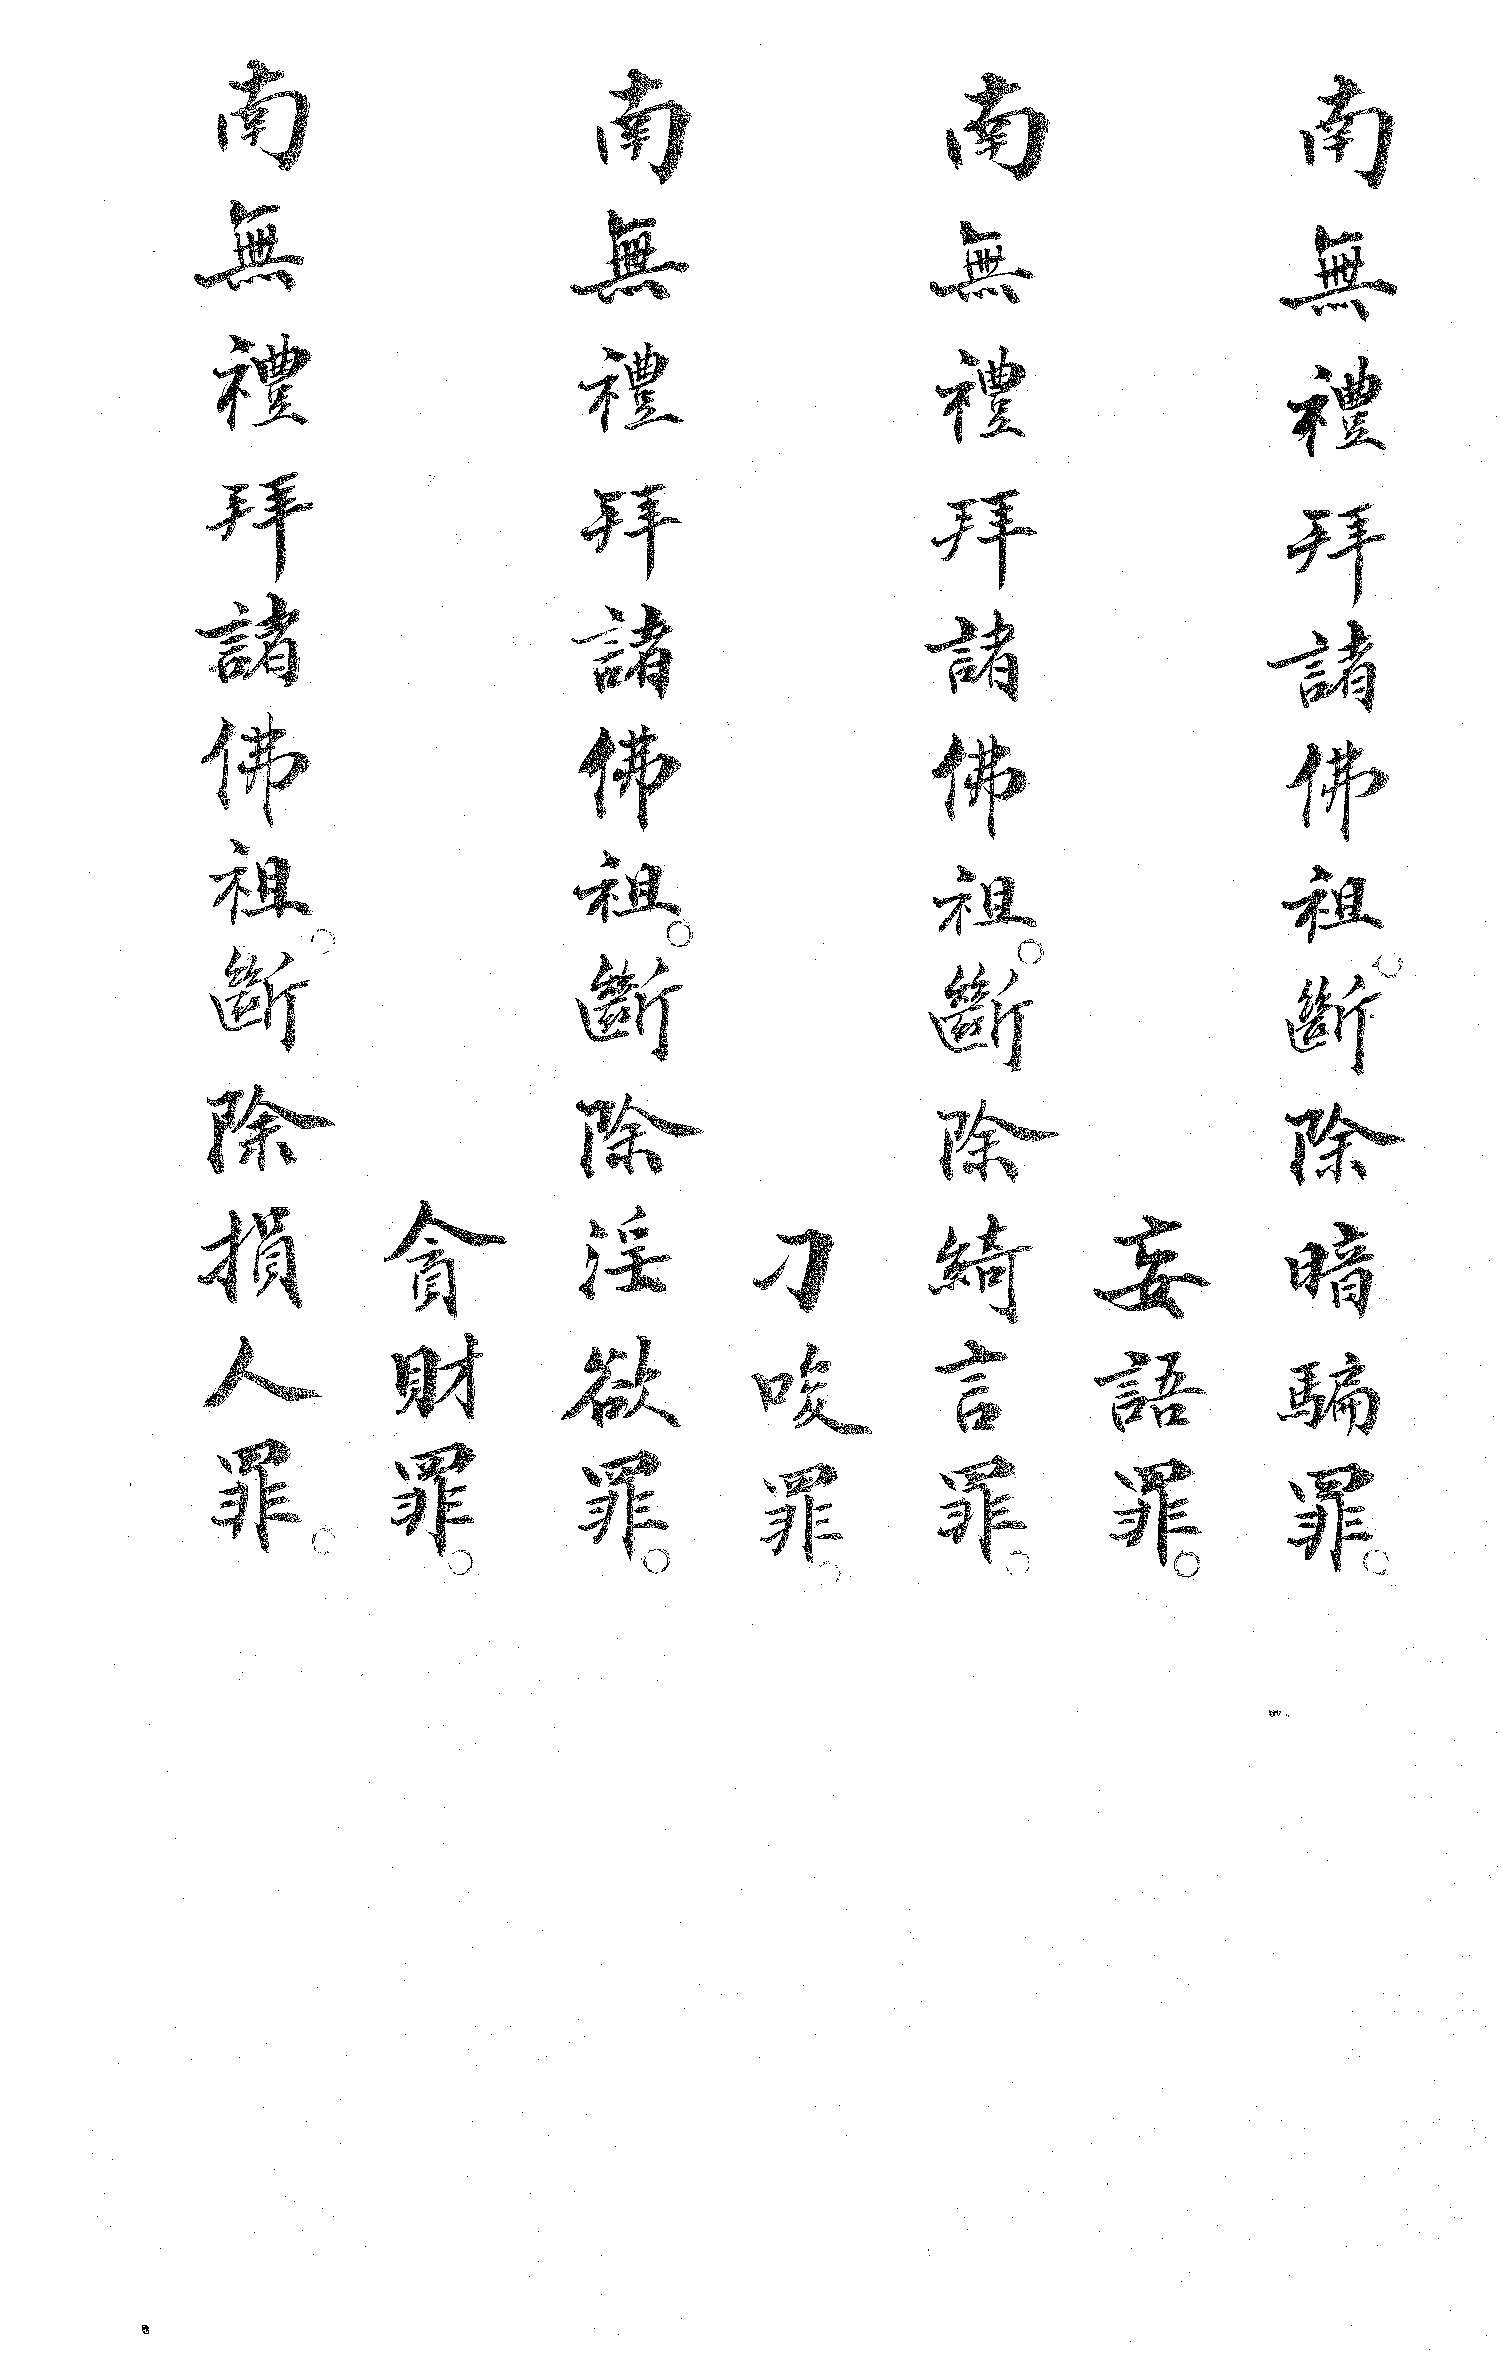 南無禮拜諸佛祖。斷除暗騙罪。
妄語罪。
南無禮拜諸佛祖。斷除綺言罪。
刁唆罪。
南無禮拜諸佛祖。斷除淫欲罪。
貪財罪。
南無禮拜諸佛祖。斷除損人罪。